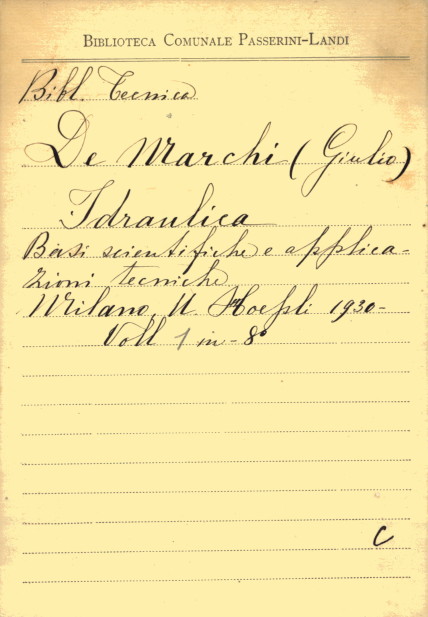 BIBLIOTECA COMUNALE PASSERINI-LANDI
Bibl. Tecnica
De Marchi (Giulio)
Idraulica
Basi scientifiche e applica-
zioni tecniche
Milano, U. Hoepli 1930-
Voll 1 in-8°
C